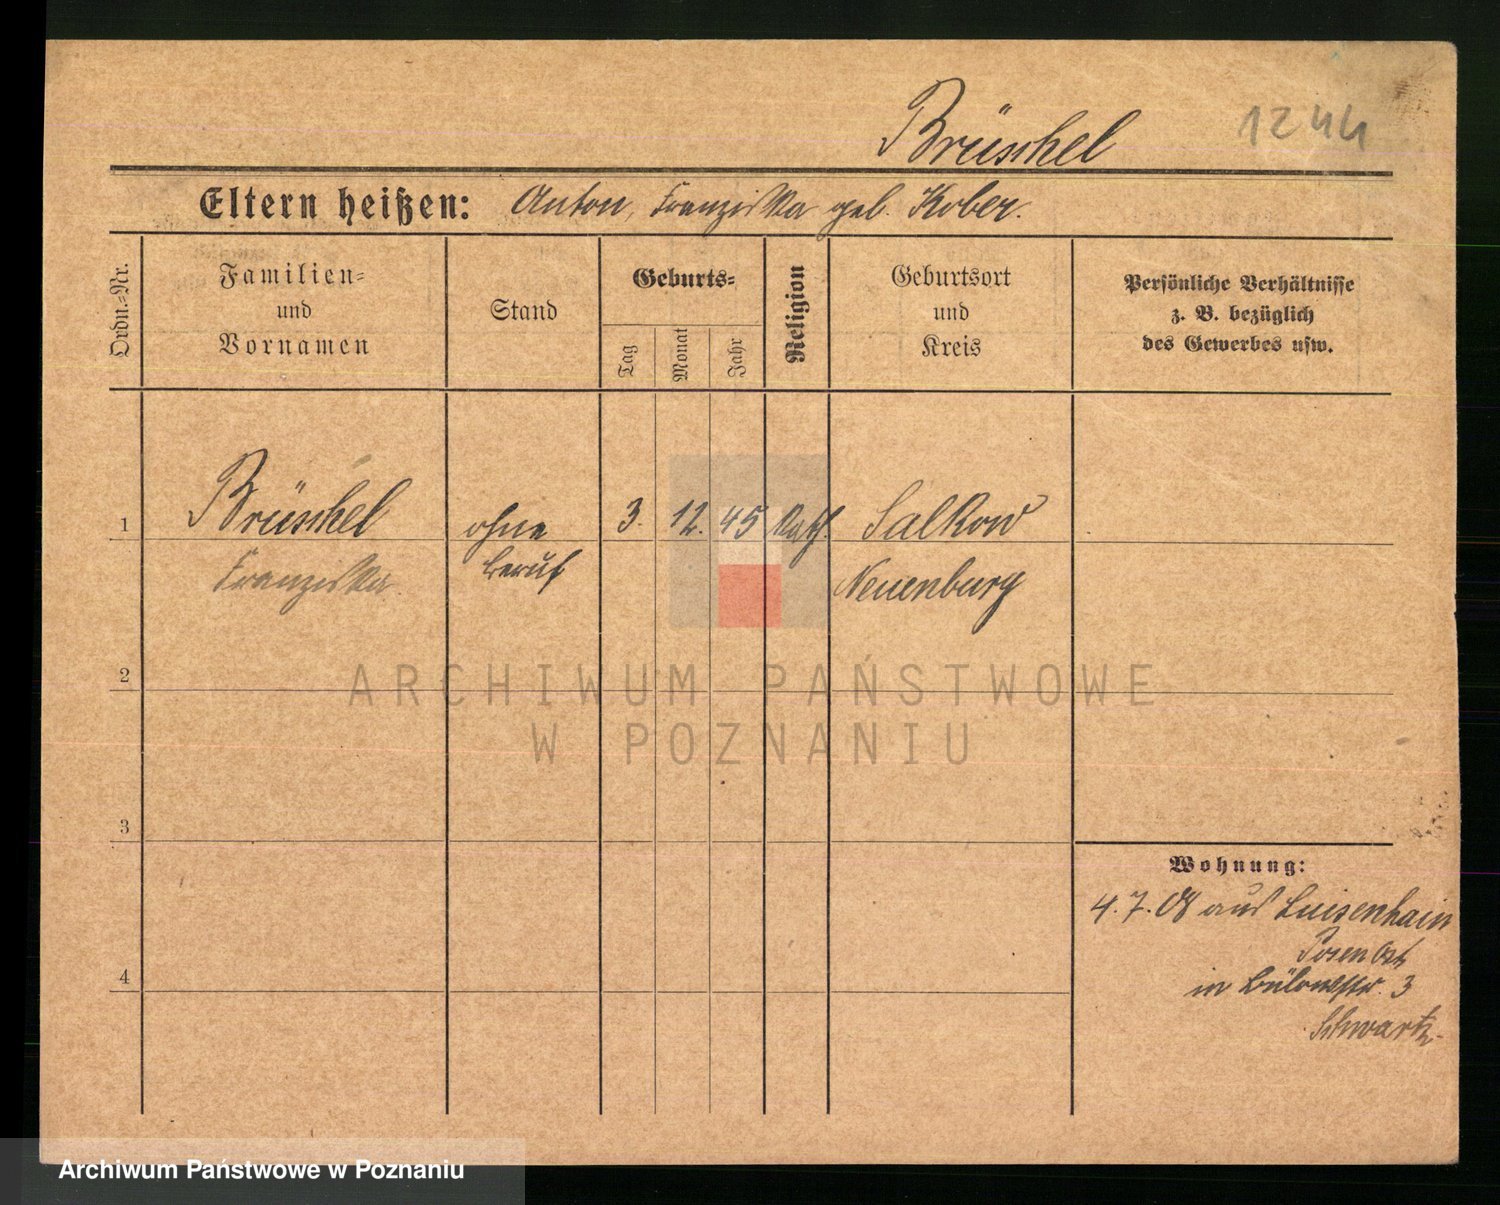 Brüschel 1244
Eltern heißen: Anton, Franziska geb. Kober.
Ordn.=Nr.
Familien=
und
Vornamen
Stand
Geburts=
Tag
Monat
Jahr
Religion
Geburtsort
und
Kreis
Persönliche Verhältnisse
z. B. bezüglich
des Gewerbes usw.
1 Brüschel ohne 3. 12. 45 Kath. Salkow
Franziska Beruf Neuenburg
2
ARCHIWUM PAŃSTWOWE
W POZNANIU
3
Wohnung:
4.7.08 aus Luisenhain
Posen Ost
4
in Bülowstr. 3
Schwartz
Archiwum Państwowe w Poznaniu